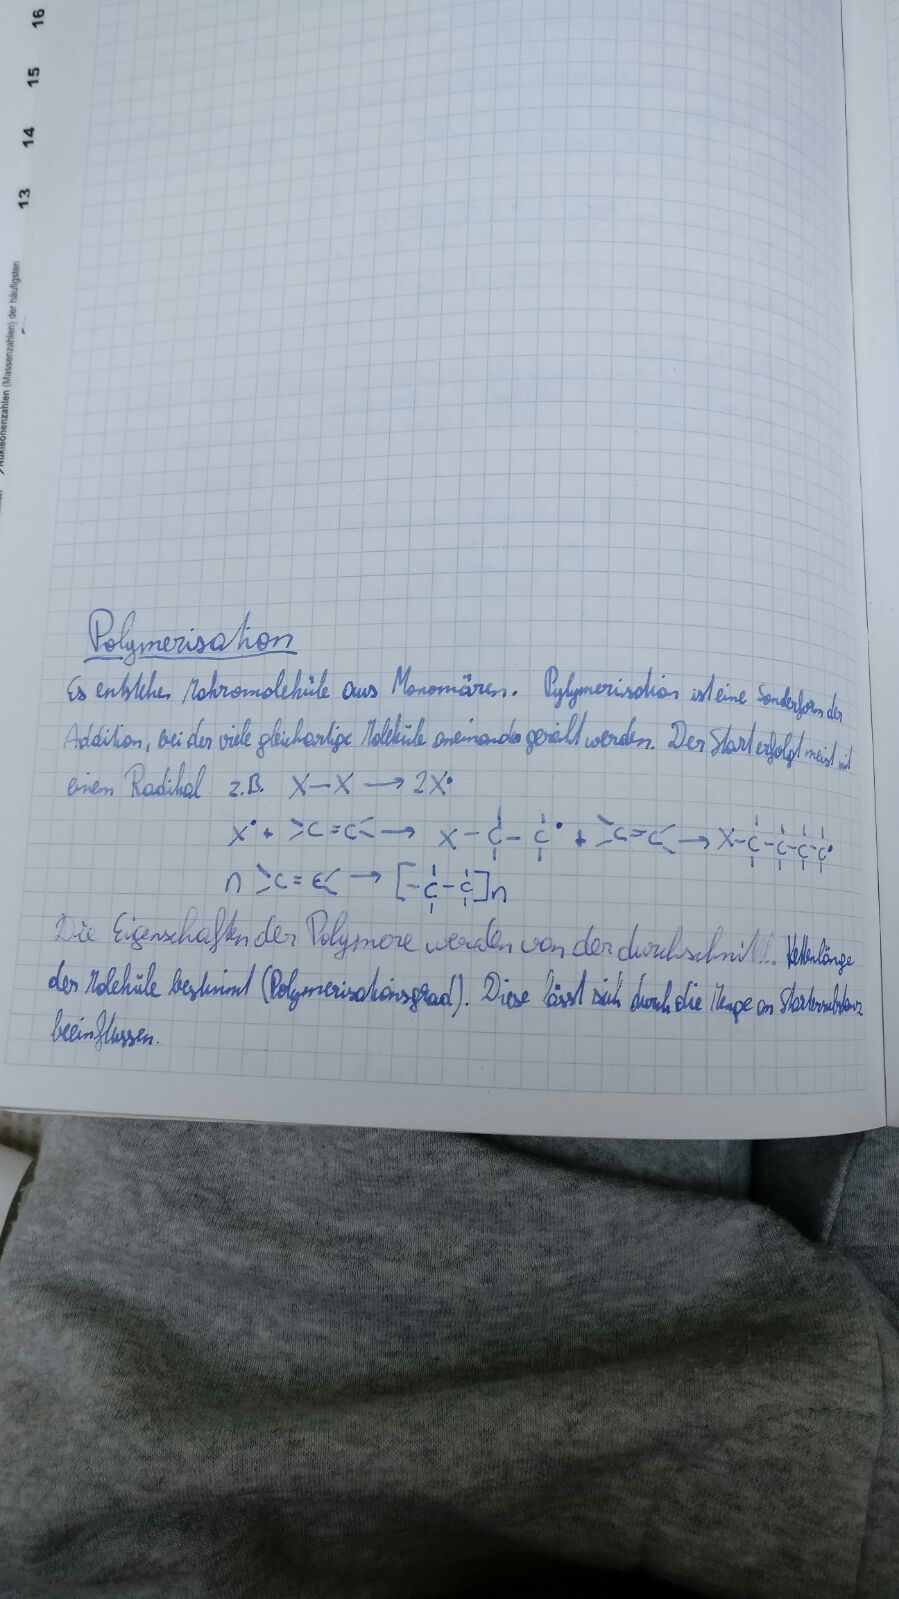 16
15
14
13
Nukleonenzahlen (Massenzahlen) der häufigsten
Polymerisation
Es entstehen Makromoleküle aus Monomären. Pylymerisation ist eine Sonderform der
Addition, bei der viele gleichartige Moleküle aneinander gereiht werden. Der Start erfolgt meist mit
einem Radikal z.B. X–X → 2X•
X• + >C=C< → X–C–C• + >C=C< → X–C–C–C–C•
n >C=C< → [–C–C–]n
Die Eigenschaften der Polymere werden von der durchschnittl. Kettenlänge
der Moleküle bestimmt (Polymerisationsgrad). Diese lässt sich durch die Menge an Startersubstanz
beeinflussen.